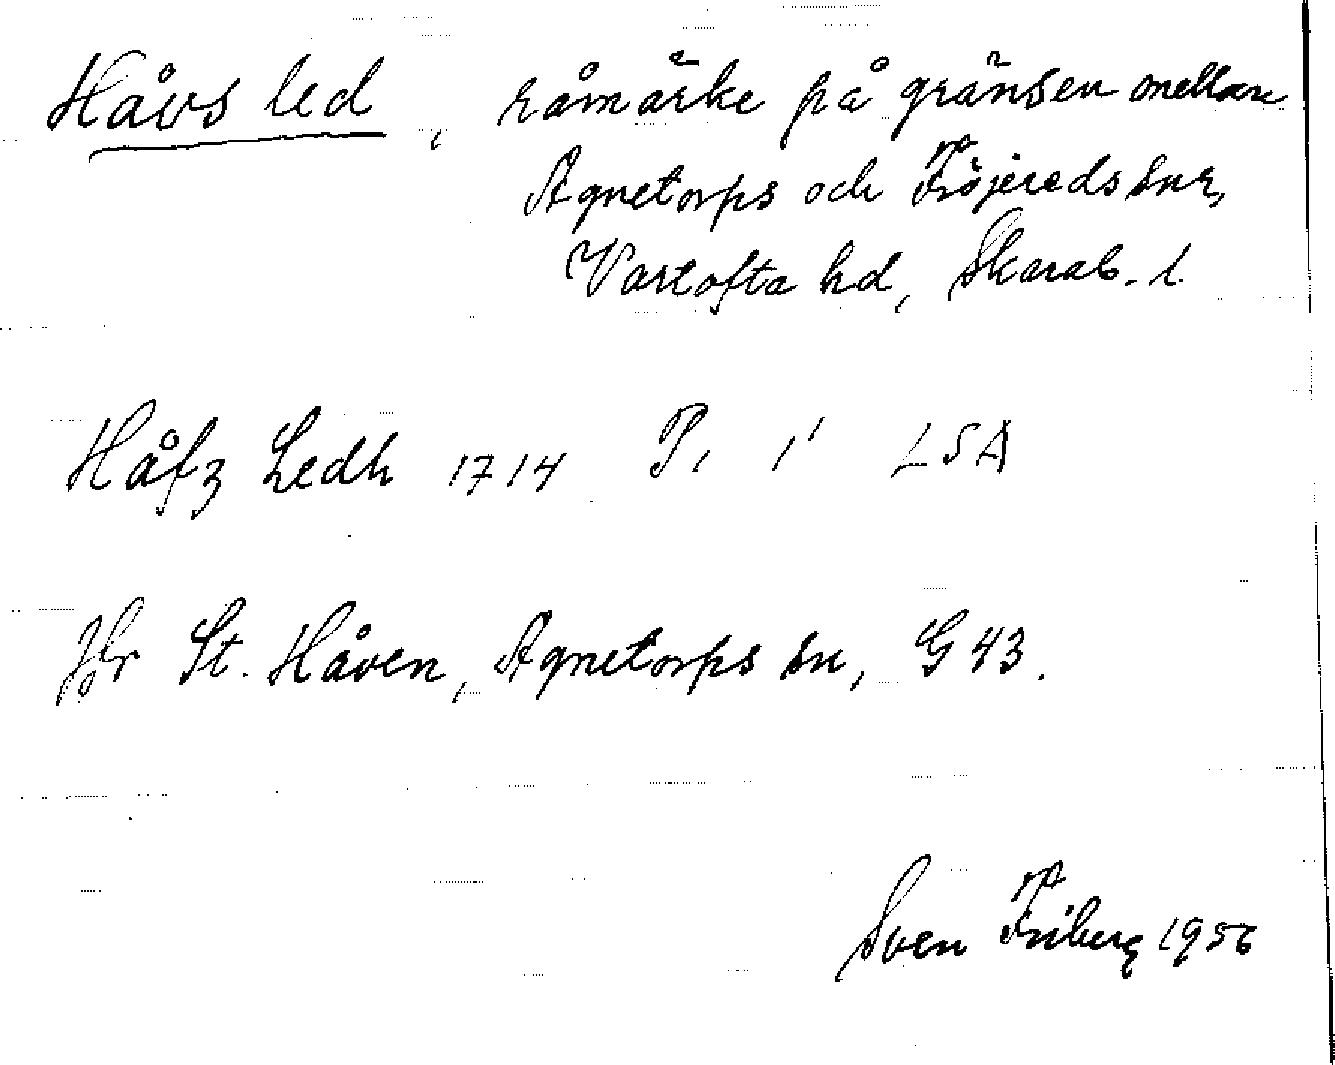 Håvs led, råmärke på gränsen mellan
Agnetorps och Fröjereds snr,
Vartofta hd, Skarab. l.
Håfz Ledh 1714 P, 1' LSA
Jfr St. Håven, Agnetorps sn, G 43.
Sven Friberg 1956